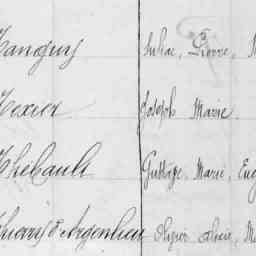 Tanguy Juliac, Pierre, M
Texier Joseph Marie
Thébault Gustave, Marie, Eug
Thierry d'Argenlieu Olivier Louis, M